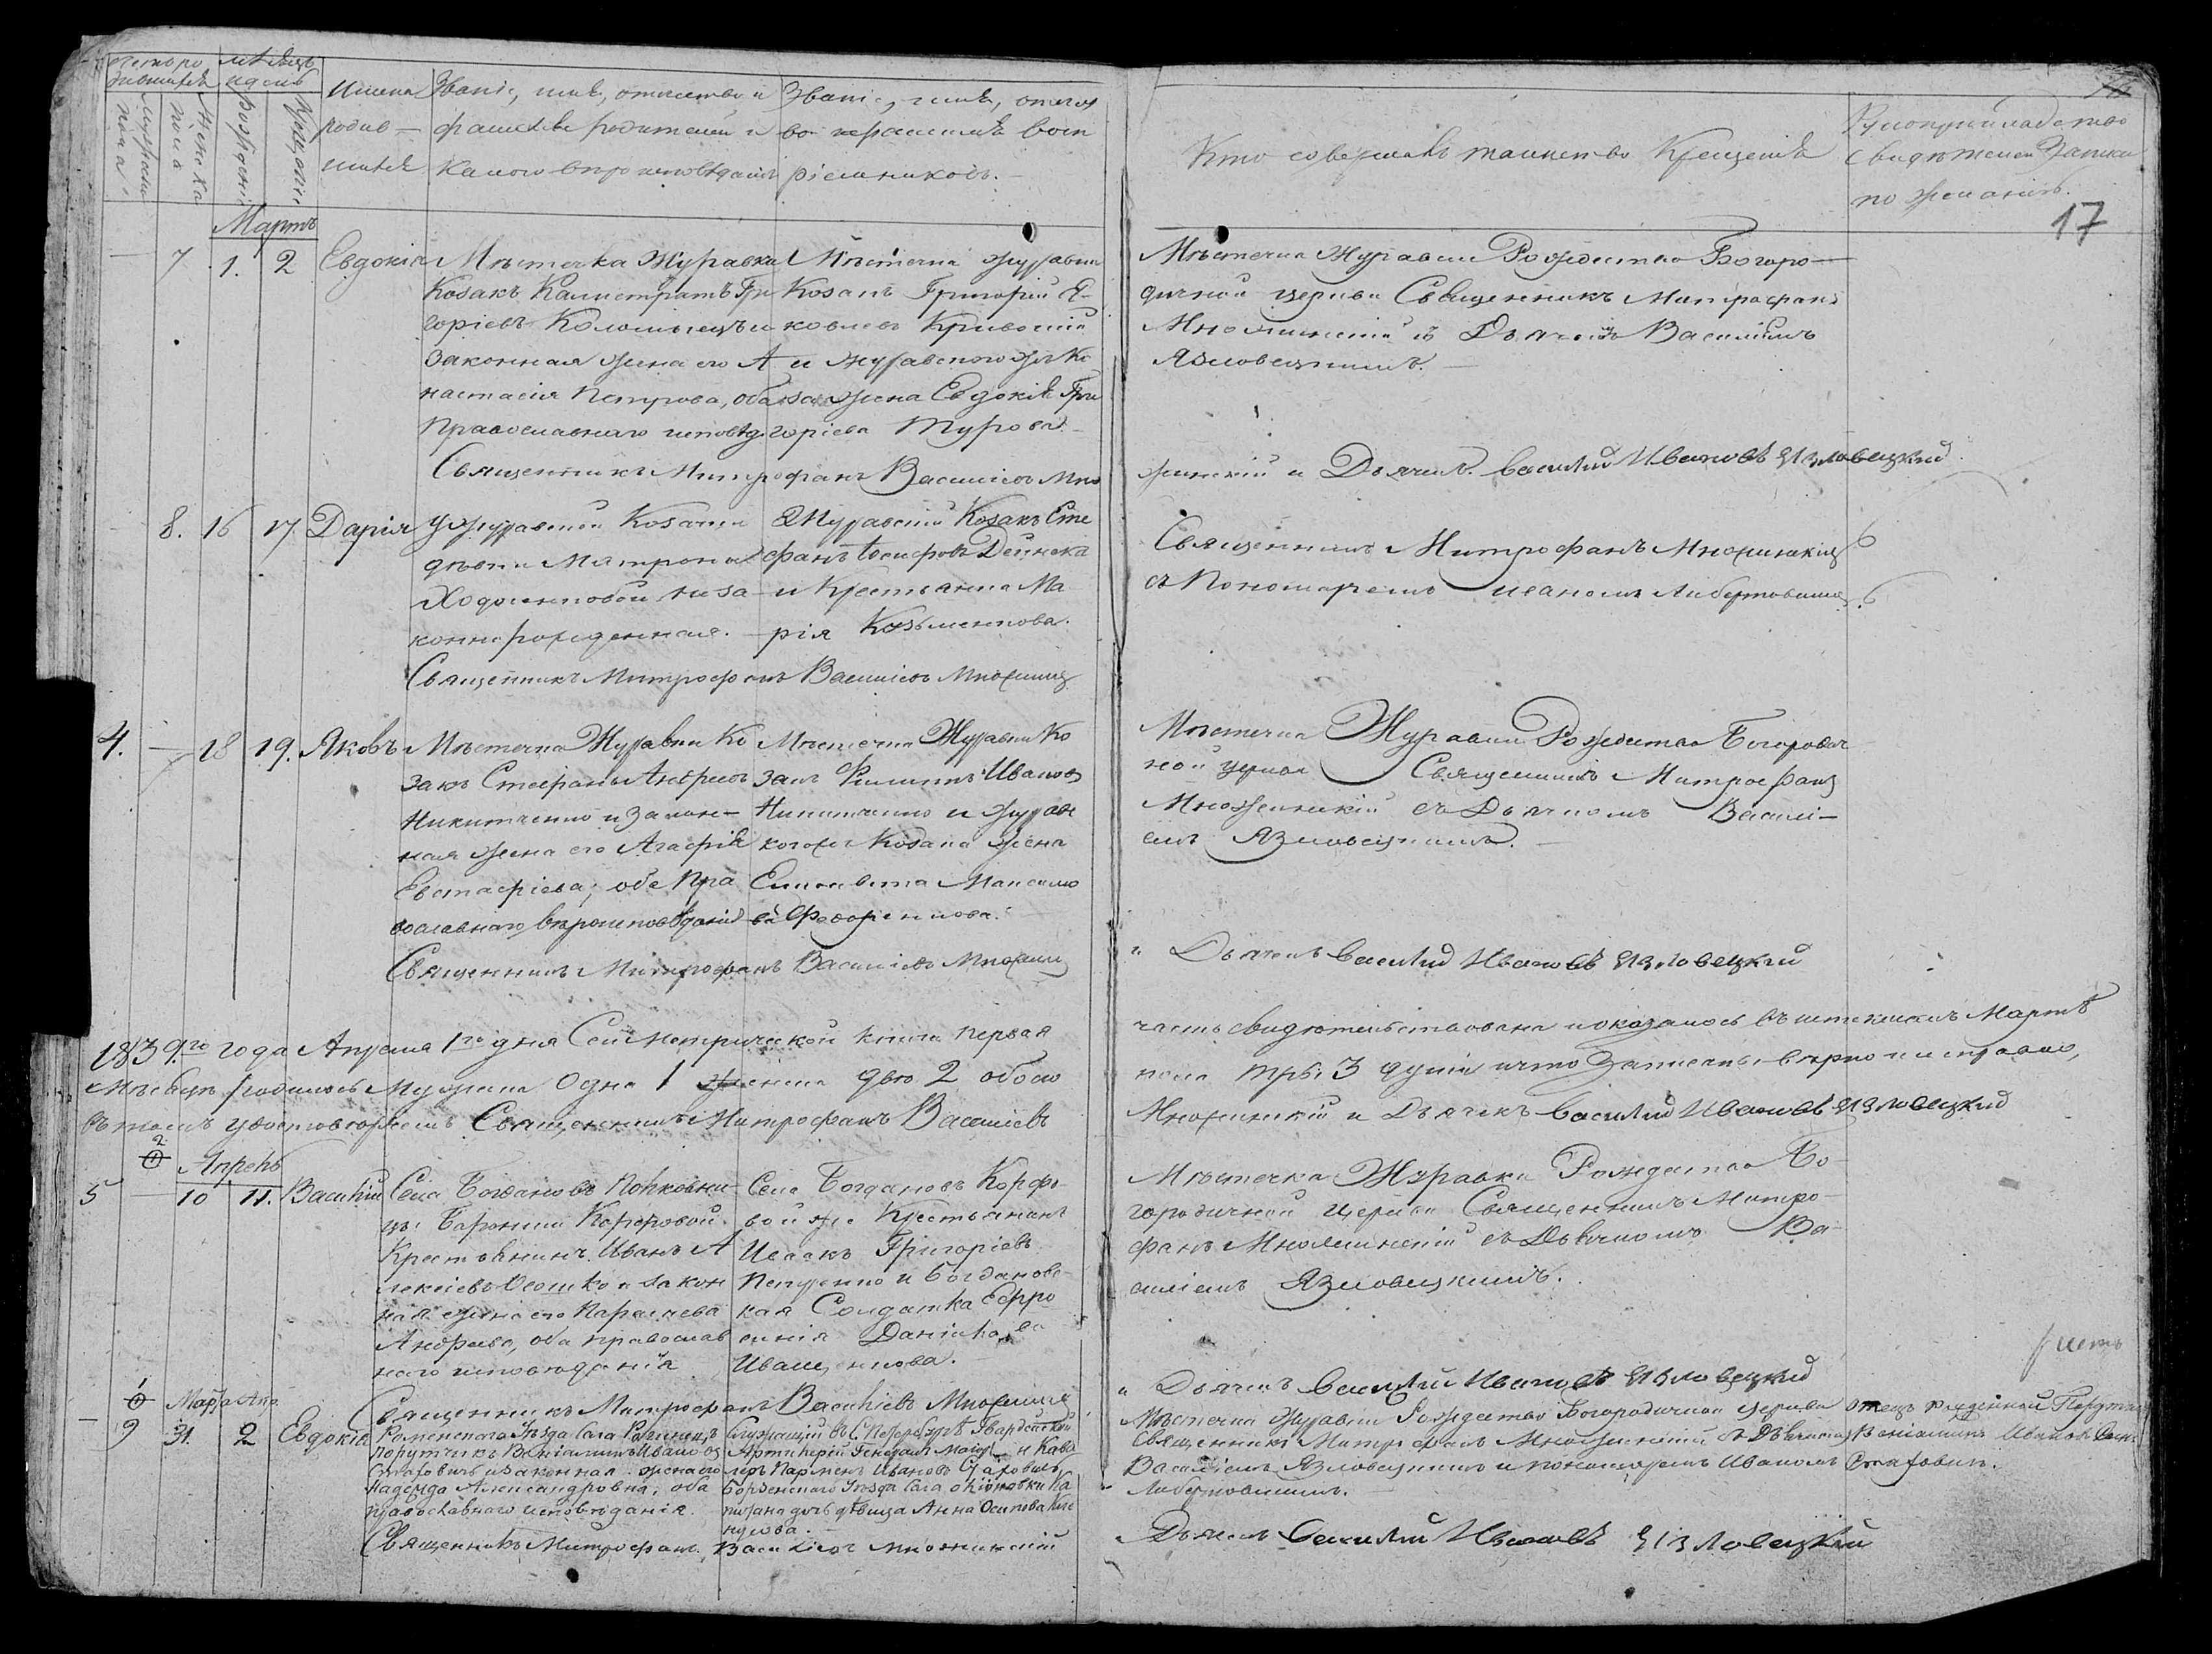 Имена родив-шихся
Званіе, имя, отчество и фамилія родителей и какого вѣроисповѣданія
Званіе, имя, отчество воспріемниковъ.
Кто совершалъ таинство Крещенія
Рукоприкладство свидѣтелей записи по желанію.
17
Мартъ
7 1. 2 Евдокія
Мѣстечка Журавки
Козакъ Калистратъ Гри
горіевъ Коломыецъ и
законная жена его А
настасія Петрова, оба
Православнаго исповѣд.
Мѣстечка Журавки
Козакъ Григорій Я-
ковлевъ Кривоший
и журавского же Ко
зака жена Евдокія Гри
горіева Турова.
Мѣстечка Журавки Рождество Богоро-
дичной церкви Священникъ Митрофанъ
Множинскій съ Дьячкомъ Василіемъ
Язловецкимъ.
Священникъ Митрофанъ Василіевъ Мно
жинскій и Дьячекъ Василий Ивановъ Язловецкий
8. 16 17. Дарія
У журавской Козачки
дѣвки Матроны
Ходоленковой неза-
коннорожденная.
Журавский Козакъ Сте
фанъ Іосифовъ Дейнека
и Крестьянка Ма
рія Козьменкова.
Священникъ Митрофанъ Множинскій
съ Пономаремъ Иваномъ Либертовичемъ
Священникъ Митрофанъ Василіевъ Множинс
4. — 18 19. Яковъ
Мѣстечка Журавки Ко
закъ Стефанъ Андреевъ
Никитченко и закон-
ная жена его Агафія
Евстафіева; обе Пра
вославнаго вѣроисповѣданія
Мѣстечка Журавки Ко
закъ Филиппъ Ивановъ
Никитченко и журавс
когожъ Козака жена
Елисавета Максимо
ва Федоренкова.
Мѣстечка Журавки Рождества Богородич
ной церкви Священникъ Митрофанъ
Множинскій съ Дьячкомъ Василі-
емъ Язловецкимъ.
Священникъ Митрофанъ Василіевъ Множинс
и Дьячекъ Василий Ивановъ Язловецкий
1839.го года Апреля 1го дня Сей Метрической книги первая
часть свидѣтельствована и оказалось въ истекшемъ Мартѣ
Мѣсяцѣ родилось Мужеска Одна 1 женска двѣ 2 обоего
пола три 3 души и что записаны вѣрно и исправно,
въ томъ удостовѣряемъ Священникъ Митрофанъ Василіевъ
Множинскій и Дьячекъ Василий Ивановъ Язловецкий
2
Апрель
5 — 10 11. Василій
Села Богдановъ Полковни-
цы Баронши Корфовой
Крестьянинъ Иванъ А
лексіевъ Леошко и закон
ная жена его Параскева
Андреева, оба православ
наго исповѣданія
Села Богдановъ Корфо-
войже Крестьянинъ
Исаакъ Григоріевъ
Пепуренко и Богдановс
кая Солдатка Ефро
синія Данилова
Иващенкова.
Мѣстечка Журавки Рождества Бо-
городичной церкви Священникъ Митро-
фанъ Множинскій съ Дьячкомъ Ва-
силіемъ Язловецкимъ.
Священникъ Митрофанъ Василіевъ Множинс
и Дьячекъ Василий Ивановъ Язловецкий
1
Марта Апр.
— 9 31. 2 Евдокія
Роменскаго Уѣзда Села Рогинецъ
Порутчикъ Веніаминъ Ивановъ
Стаховичъ и законная жена его
Надежда Александровна; оба
православнаго исповѣданія.
Служащій въ С. Петербургѣ Гвардейской
Артилеріи Генералъ Маіоръ и Кава
леръ Парменъ Ивановъ Стаховичъ
Борзенскаго Уѣзда Села
питана дочь дѣвица Анна Осипова
Мѣстечка Журавки Рождества Богородичной церкви
Священникъ Митрофанъ Множинскій съ Дьячкомъ
Василіемъ Язловецкимъ и пономаремъ Иваномъ
Либертовичемъ.
Отецъ рожденной Порутчикъ
Веніаминъ Ивановъ Сынъ
Стаховичъ.
Священникъ Митрофанъ Василіевъ Множинскій
и Дьячекъ Василий Ивановъ Язловецкий